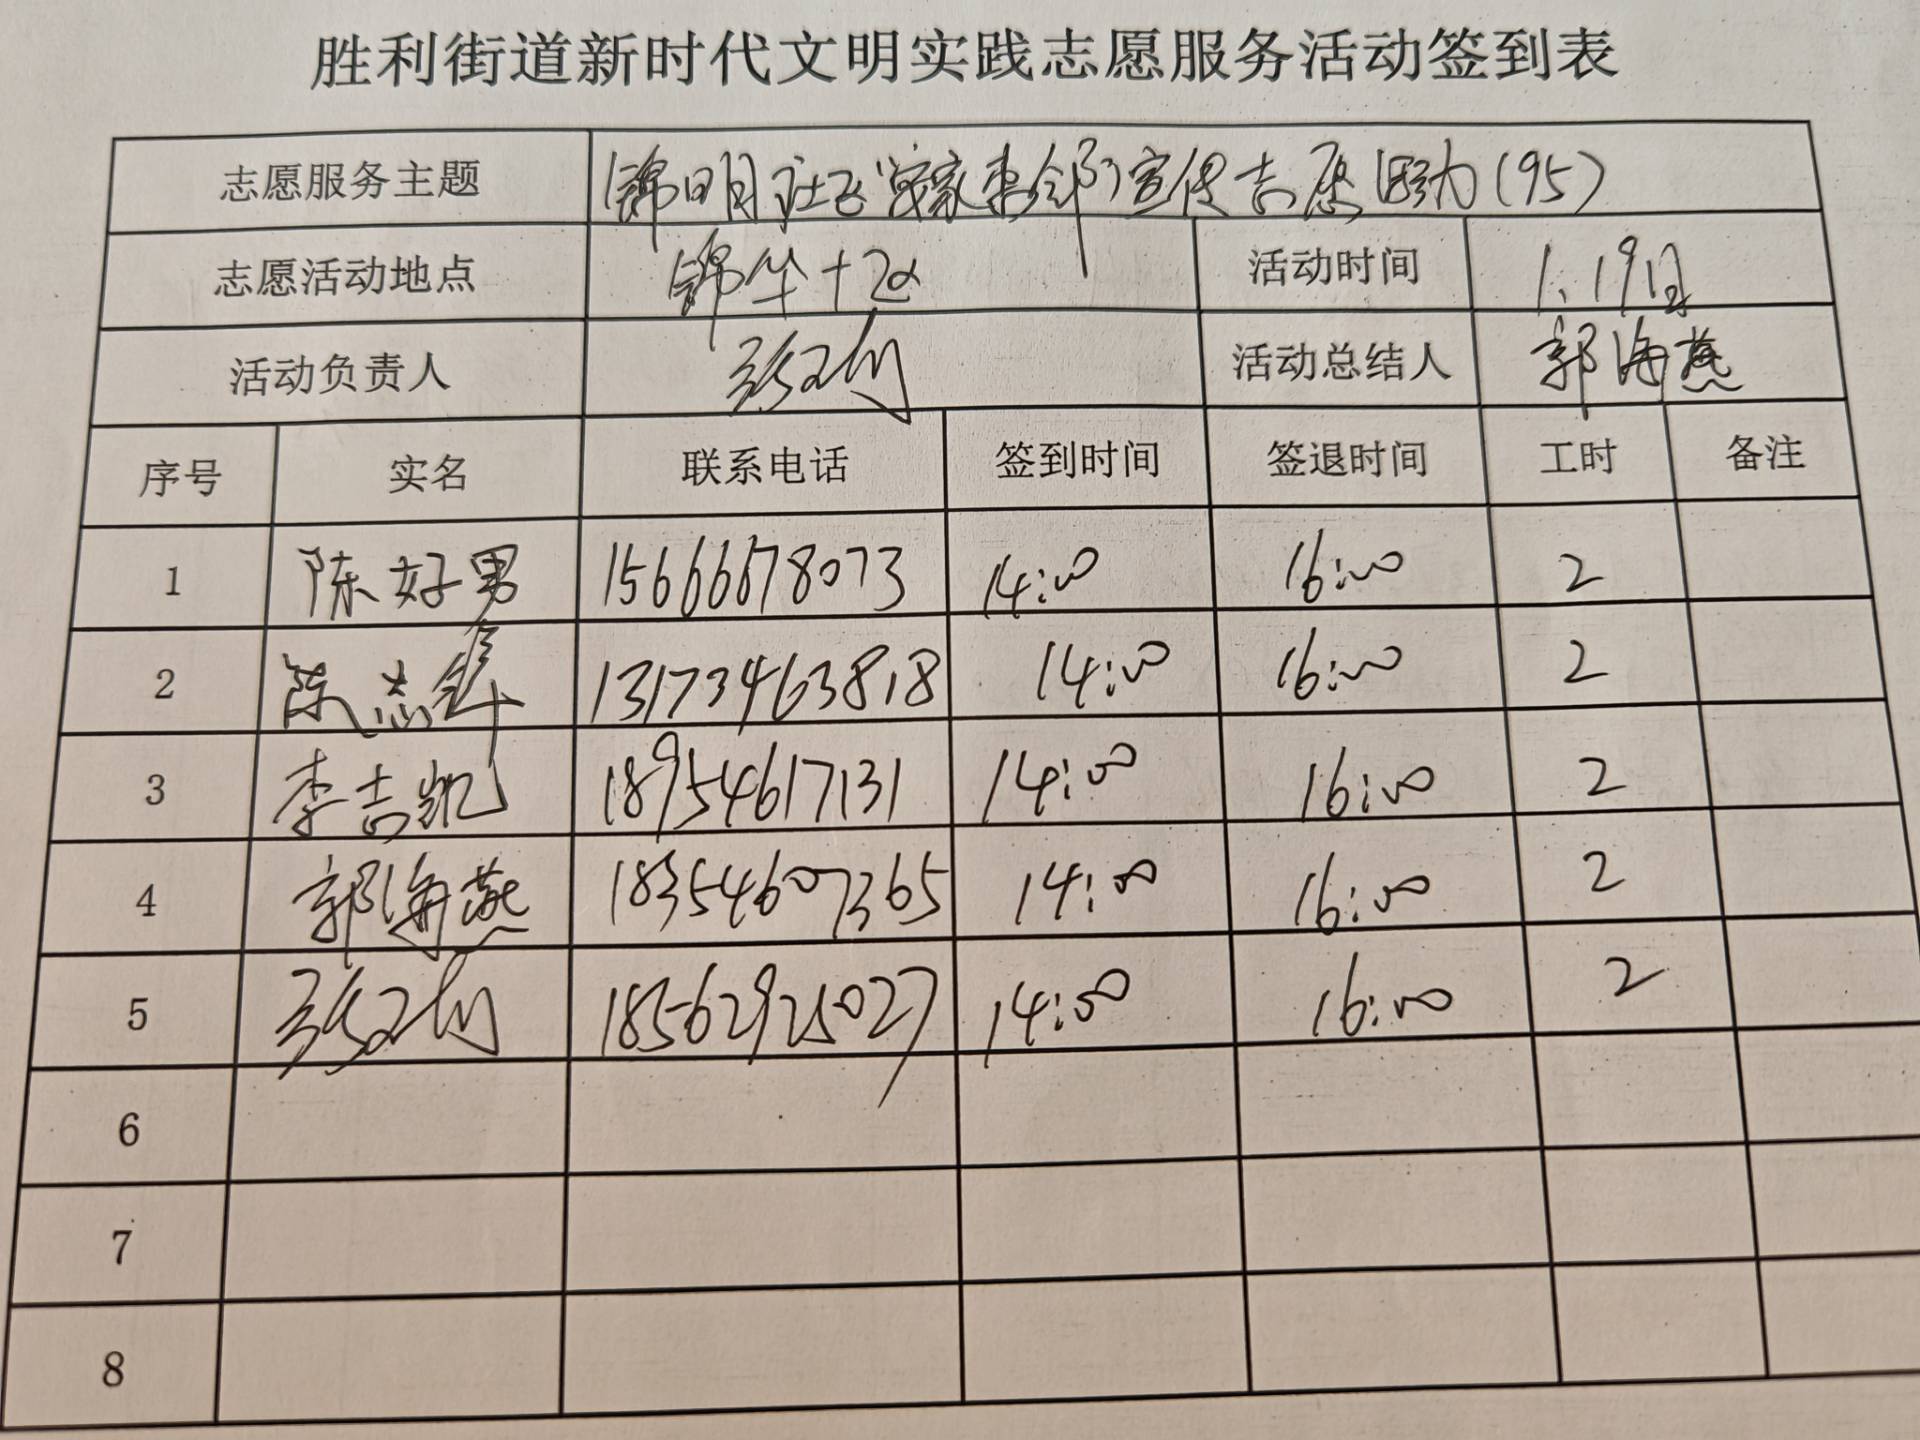 胜利街道新时代文明实践志愿服务活动签到表
志愿服务主题 锦明社区 宣传志愿活动(95)
志愿活动地点 锦华十区 活动时间 1.19日
活动负责人 活动总结人 郭海燕
序号 实名 联系电话 签到时间 签退时间 工时 备注
1 陈好男 15666678073 14:00 16:00 2
2 陈志锋 13173463818 14:00 16:00 2
3 李志凯 18954617131 14:00 16:00 2
4 郭海燕 18354607365 14:00 16:00 2
5 18562925027 14:00 16:00 2
6
7
8